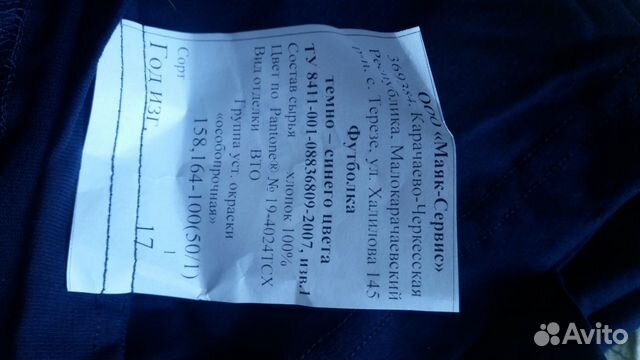 ООО «Маяк-Сервис»
Карачаево-Черкесская
Республика, Малокарачаевский
с. Терезе, ул. Халилова 145
Футболка
темно – синего цвета
ТУ 8411-001-08836809-2007, изв.1
Состав сырья хлопок 100%
Цвет по Pantone® № 19-4024TCX
Вид отделки ВТО
Группа уст. окраски
«особопрочная»
158,164-100(50/1)
Сорт 1
Год изг. 17
Avito